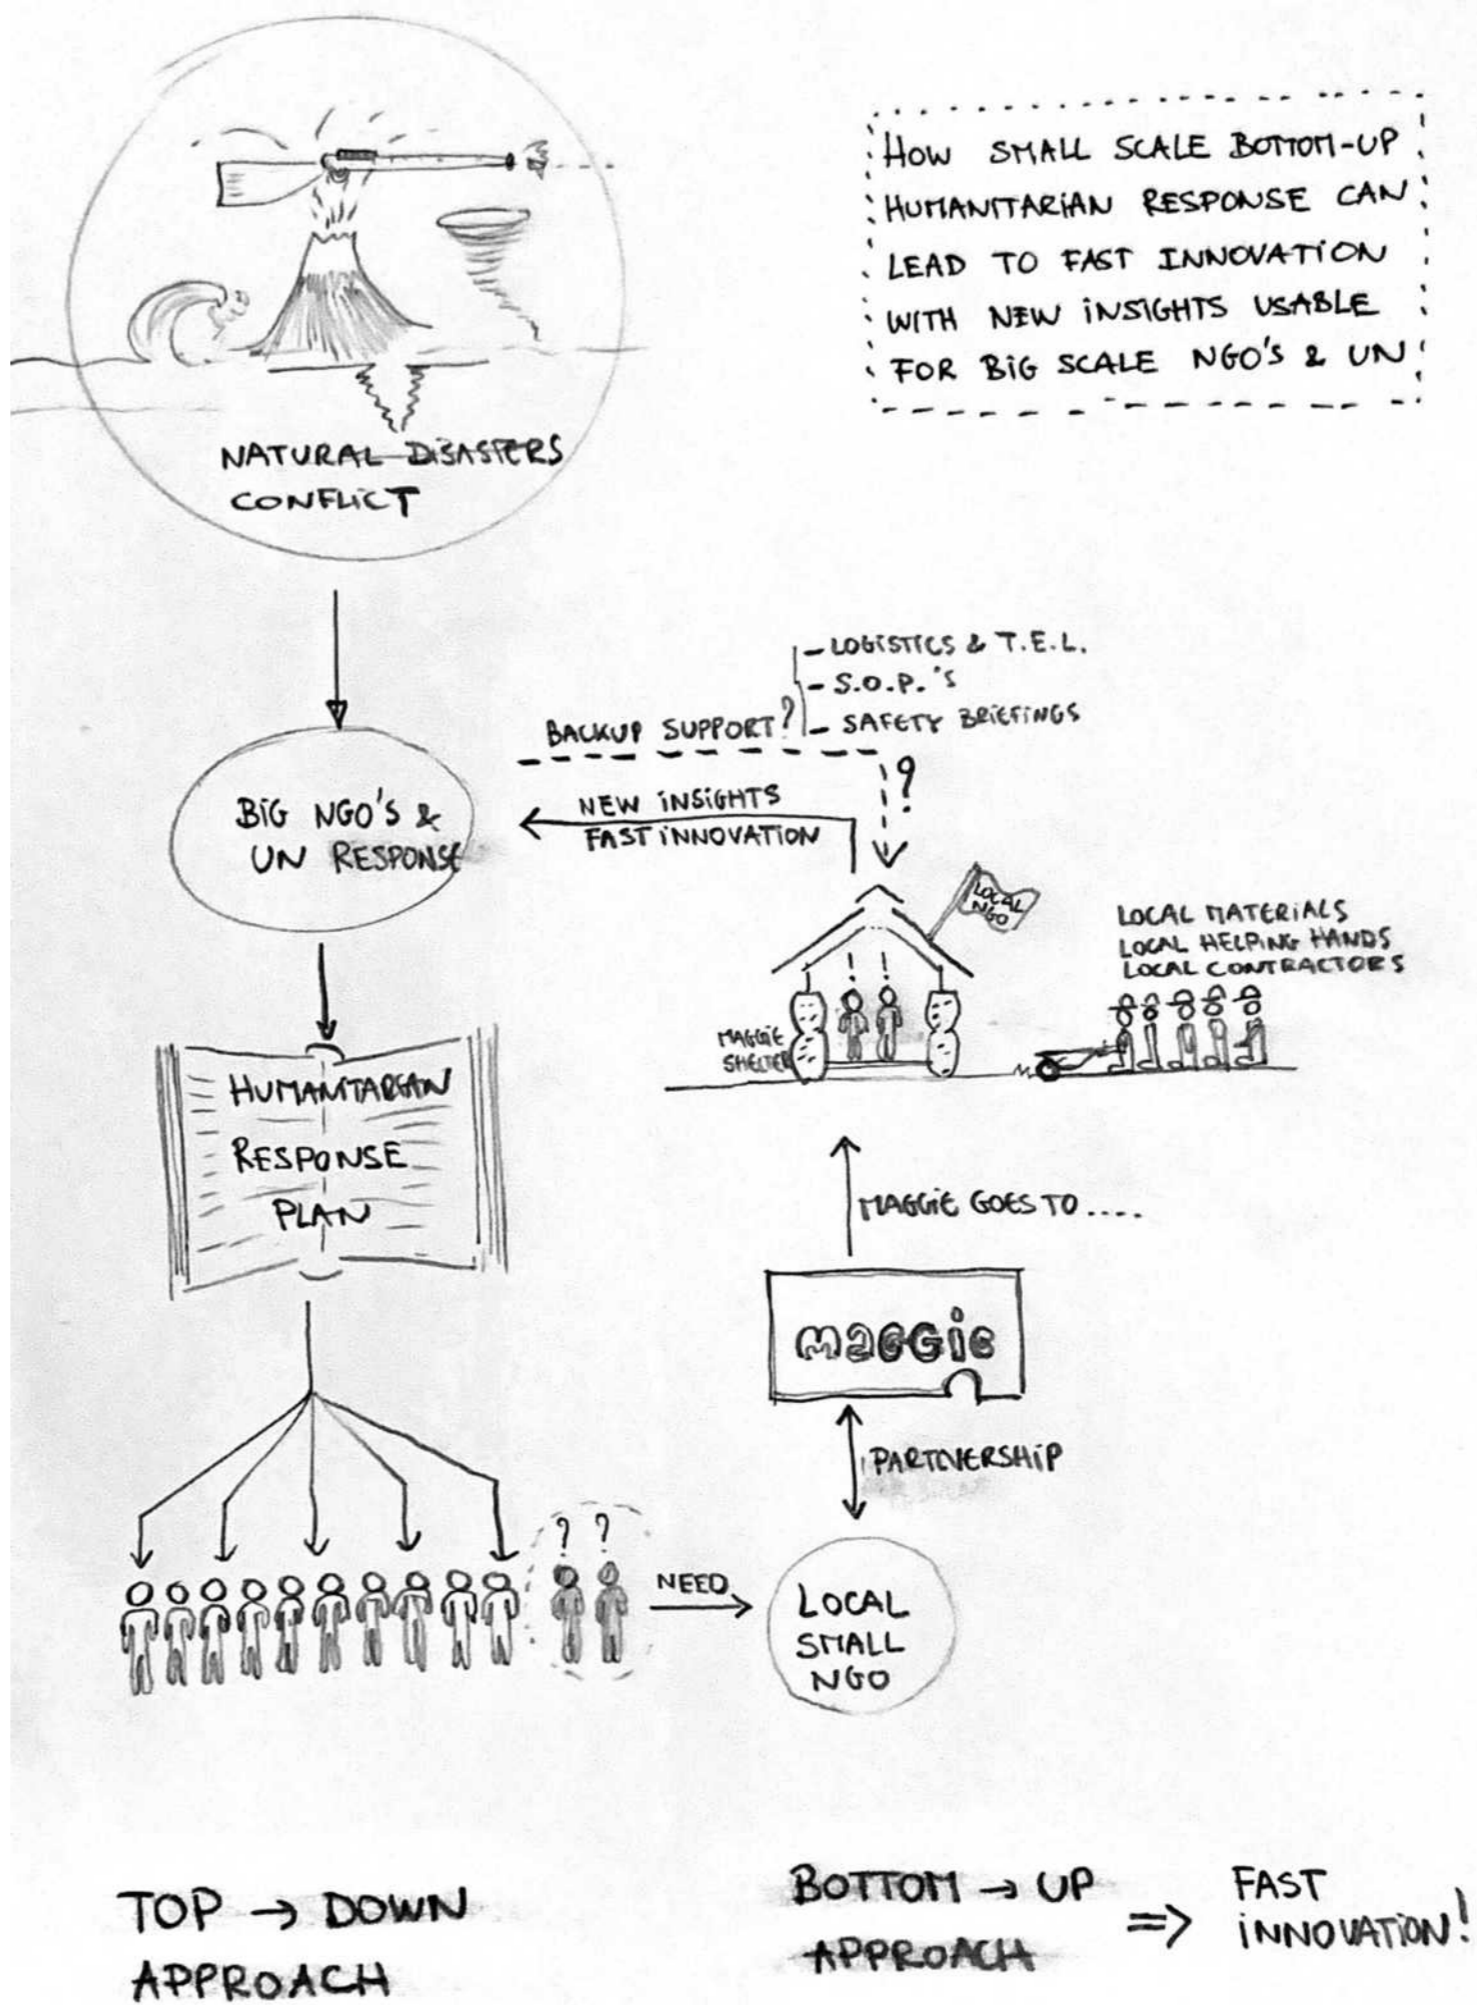 HOW SMALL SCALE BOTTOM-UP
HUMANITARIAN RESPONSE CAN
LEAD TO FAST INNOVATION
WITH NEW INSIGHTS USABLE
FOR BIG SCALE NGO'S & UN
NATURAL DISASTERS
CONFLICT
- LOGISTICS & T.E.L.
- S.O.P.'S
- SAFETY BRIEFINGS
BACKUP SUPPORT?
?
NEW INSIGHTS
FAST INNOVATION
BIG NGO'S &
UN RESPONSE
LOCAL
NGO
LOCAL MATERIALS
LOCAL HELPING HANDS
LOCAL CONTRACTORS
! !
MAGGIE
SHELTER
HUMANITARIAN
RESPONSE
PLAN
MAGGIE GOES TO ....
maGGie
PARTNERSHIP
? ?
NEED
LOCAL
SMALL
NGO
TOP → DOWN
APPROACH
BOTTOM → UP
APPROACH
=>
FAST
INNOVATION!